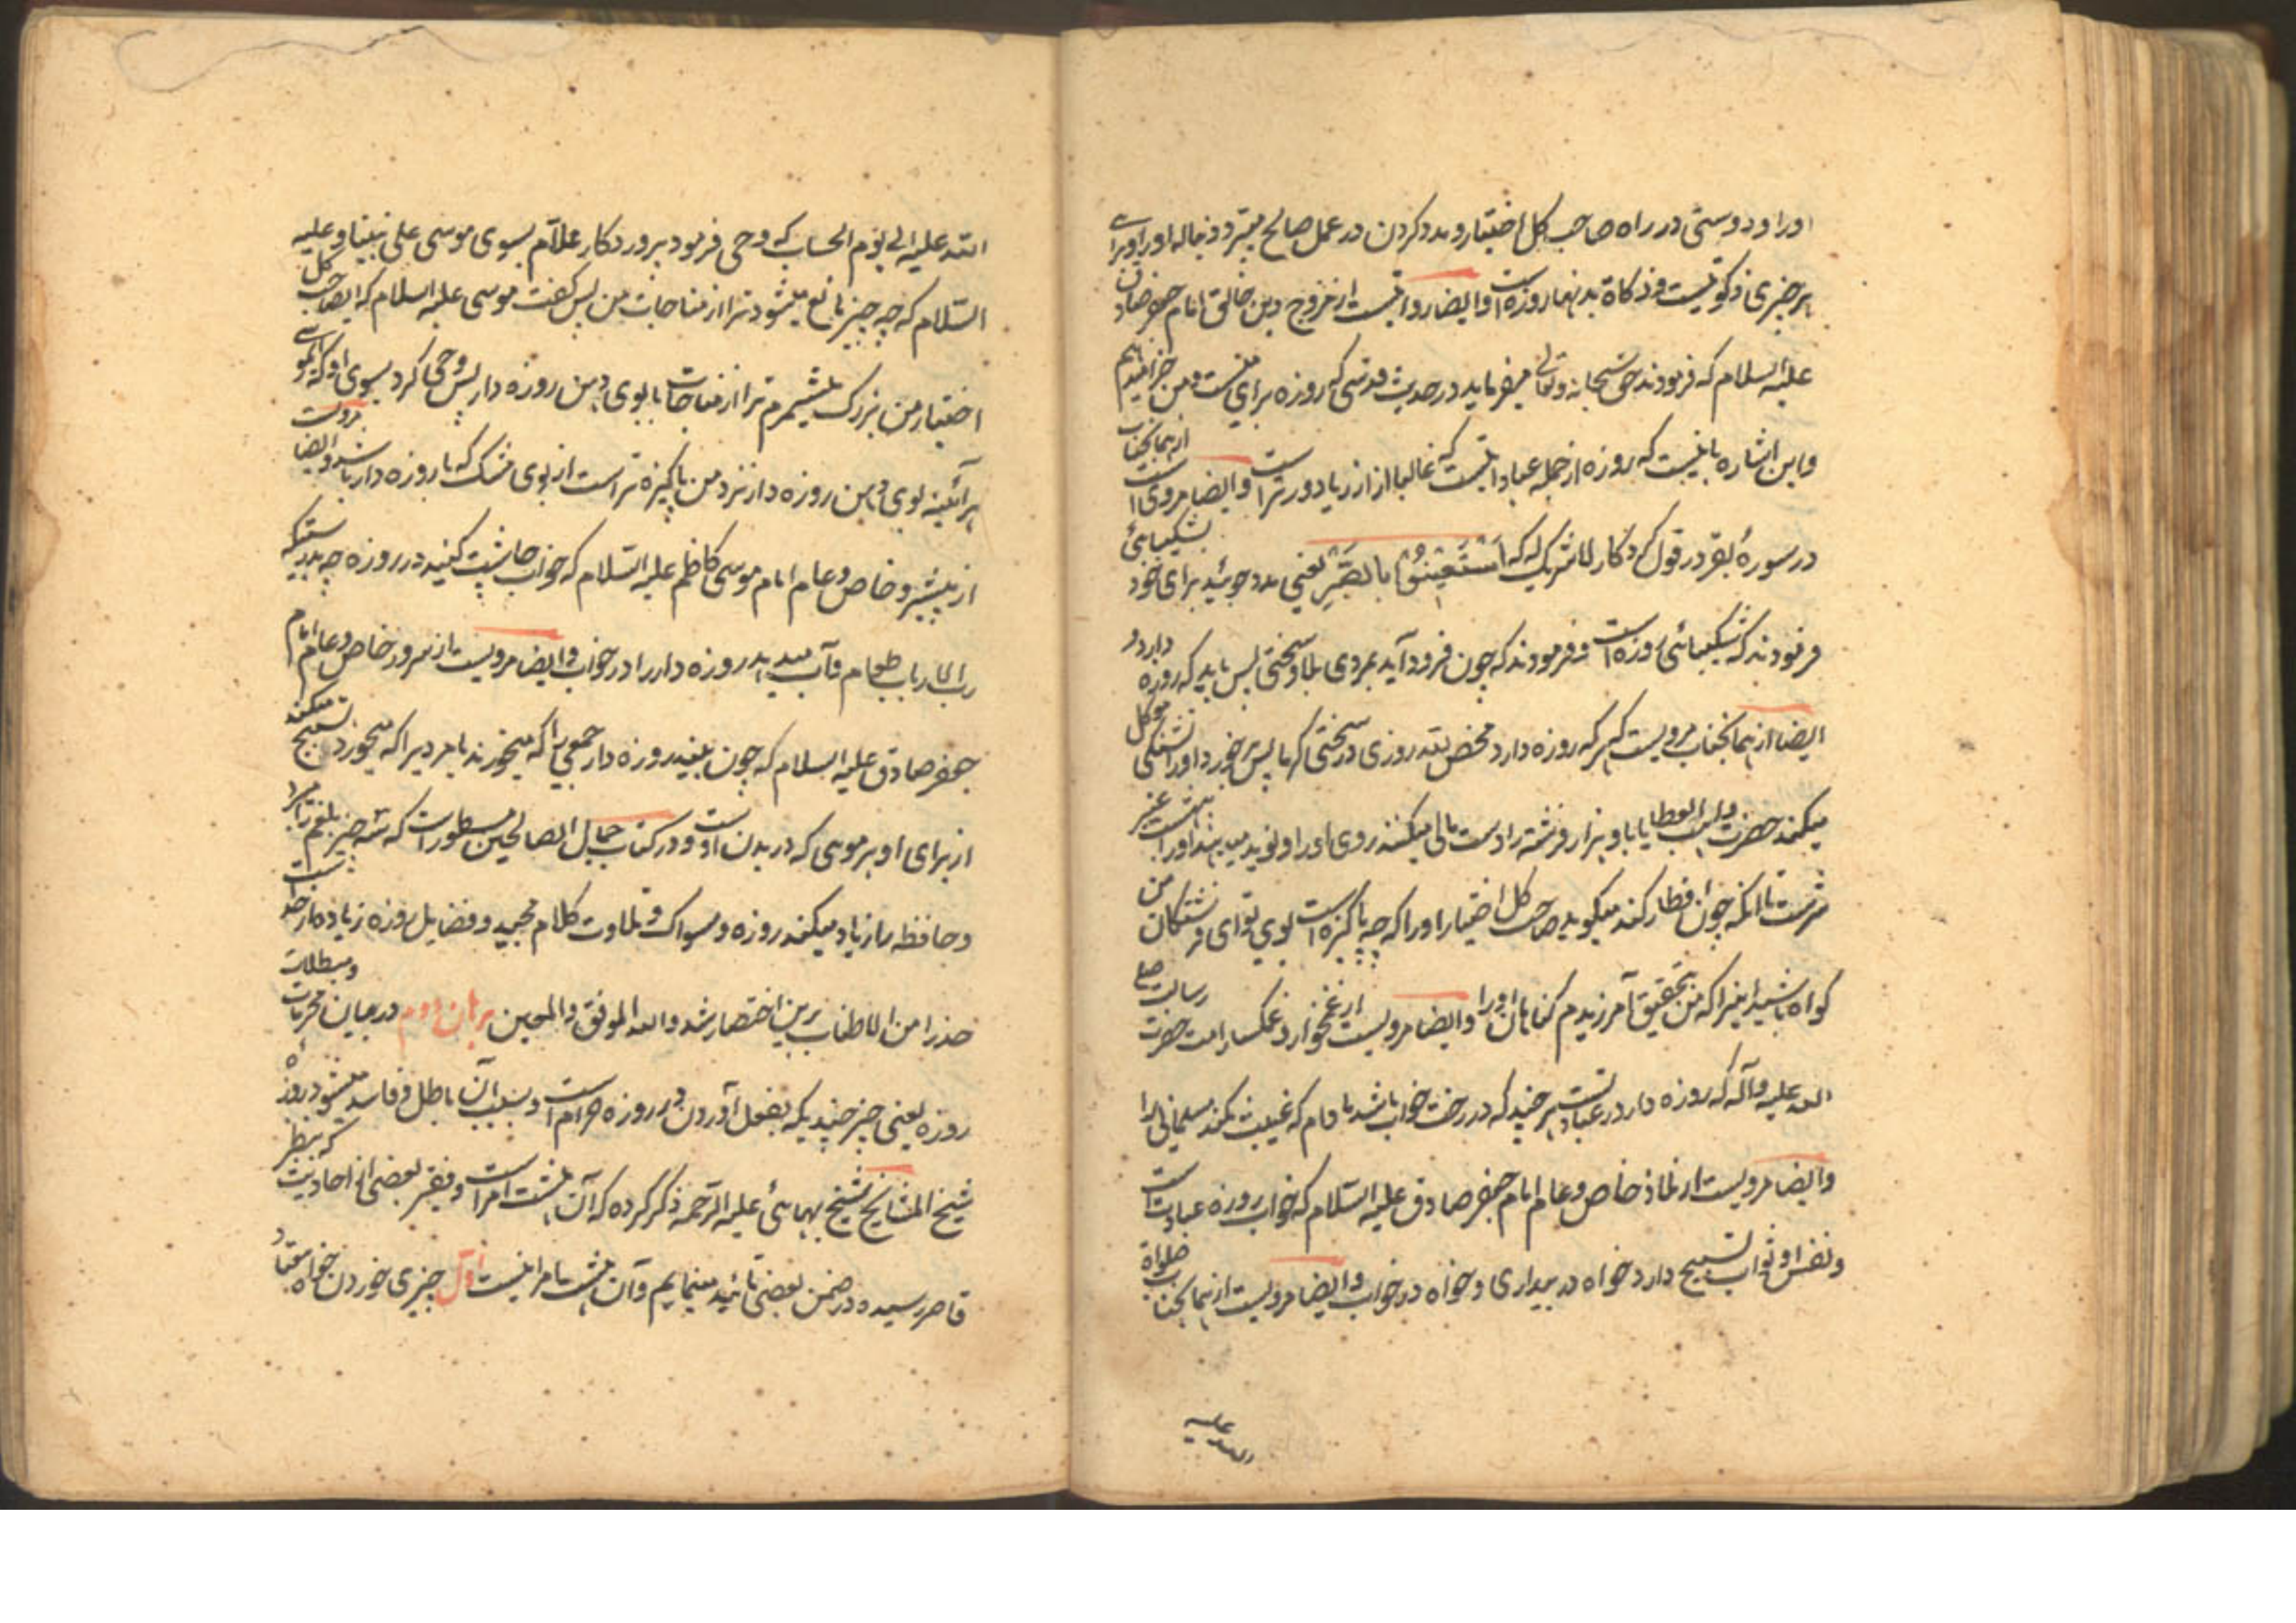 اورا و دوستی در راه صاحب کل اختیار و مدد کردن در عمل صالح میبرد دنباله اورا و برای
هر چیزی زکوتیست و زکاة بدنها روزه است و ایضا روایتست از مروج دین خالق امام جعفر صادق
علیه السلام که فرمودند حق سبحانه و تعالی میفرماید در حدیث قدسی که روزه برای منست و من جزا میدهم
و این اشاره بانیست که روزه از جمله عباداتیست که غالبا از از ریا دورتر است و ایضا مرویست از همانجناب
در سورهٔ بقر در قول کردگار لاشریک له که اسْتَعِینُوْا بالصَّبْرِ یعنی مدد جوئید برای خود بشکیبائی
فرمودند که شکیبائی روزه است و فرمودند که چون فرود آید بمردی بلا و سختی پس باید که روزه دارد و
ایضا از همانجناب مرویست که هر که روزه دارد محض لله روزی در سختی گرما پس برخورد او را تشنگی موکل
میکند حضرت واهب العطایا باو هزار فرشته را دست مالی میکنند روی او را و نوید میدهند او را بهشت عنبر
سرشت تا آنکه چون افطار کند میگوید صاحب کل اختیار او را که چه پاکیزه است بوی تو ای فرشتگان من
گواه باشید اینرا که من بتحقیق آمرزیدم گناهان او را و ایضا مرویست از غمخوار و غمگسار امت حضرت رسالت صلی
الله علیه و آله که روزه دار در عبادتست هر چند که در رخت خواب باشد مادام که غیبت نکند مسلمانی را
و ایضا مرویست از ملاذ خاص و عام امام جعفر صادق علیه السلام که خواب روزه عبادتست
و نفس او ثواب تسبیح دارد خواه در بیداری و خواه در خواب و ایضا مرویست از همانجناب صلواة
الله علیه
الله علیه الی یوم الحساب که وحی فرمود پروردکار علّام بسوی موسی علی نبینا و علیه
السّلام که چه چیز مانع میشود ترا از مناجات من پس کفت موسی علیه السلام که ایصاحب کل
اختیار من بزرک میشمرم ترا از مناجات با بوی دهن روزه دار پس وحی کرد بسوی او که ایموسی
هر آئینه بوی دهن روزه دار نزد من پاکیزه تر است از بوی مشک که با روزه دار باشد و ایضا مرویست
از پیشرو خاص و عام امام موسی کاظم علیه السّلام که خواب چاشت کنید در روزه چه بدرستیکه
رب الارباب طعام و آب میدهد روزه دار را در خواب و ایضا مرویست از سرور خاص و عام امام
جعفر صادق علیه السلام که چون ببیند روزه دار جمعی را که میخورند یا مردیرا که میخورد تسبیح میکند
از برای او هر موی که در بدن اوست و در کتاب جمال الصالحین مسطور است که سه چیز بلغم را میبرد
و حافظه را زیاد میکند روزه و مسواک و تلاوت کلام مجید و فضایل روزه زیاده از حدست
حذرا من الاطناب برین اختصار شد والله الموفق والمعین برهان دوم در بیان محرمات و مبطلات
روزه یعنی چیز چندیکه بفعل آوردن در روزه حرام است و بسبب آن باطل و فاسد میشود روزه
شیخ المشایخ شیخ بهائی علیه الرّحمه ذکر کرده که آن هشت امر است و بفقیر بعضی از احادیث که بنظر
قاصر رسیده در ضمن بعضی تائید مینمایم و آن هشت امر اینست اوّل چیزی خوردن خواه معتاد